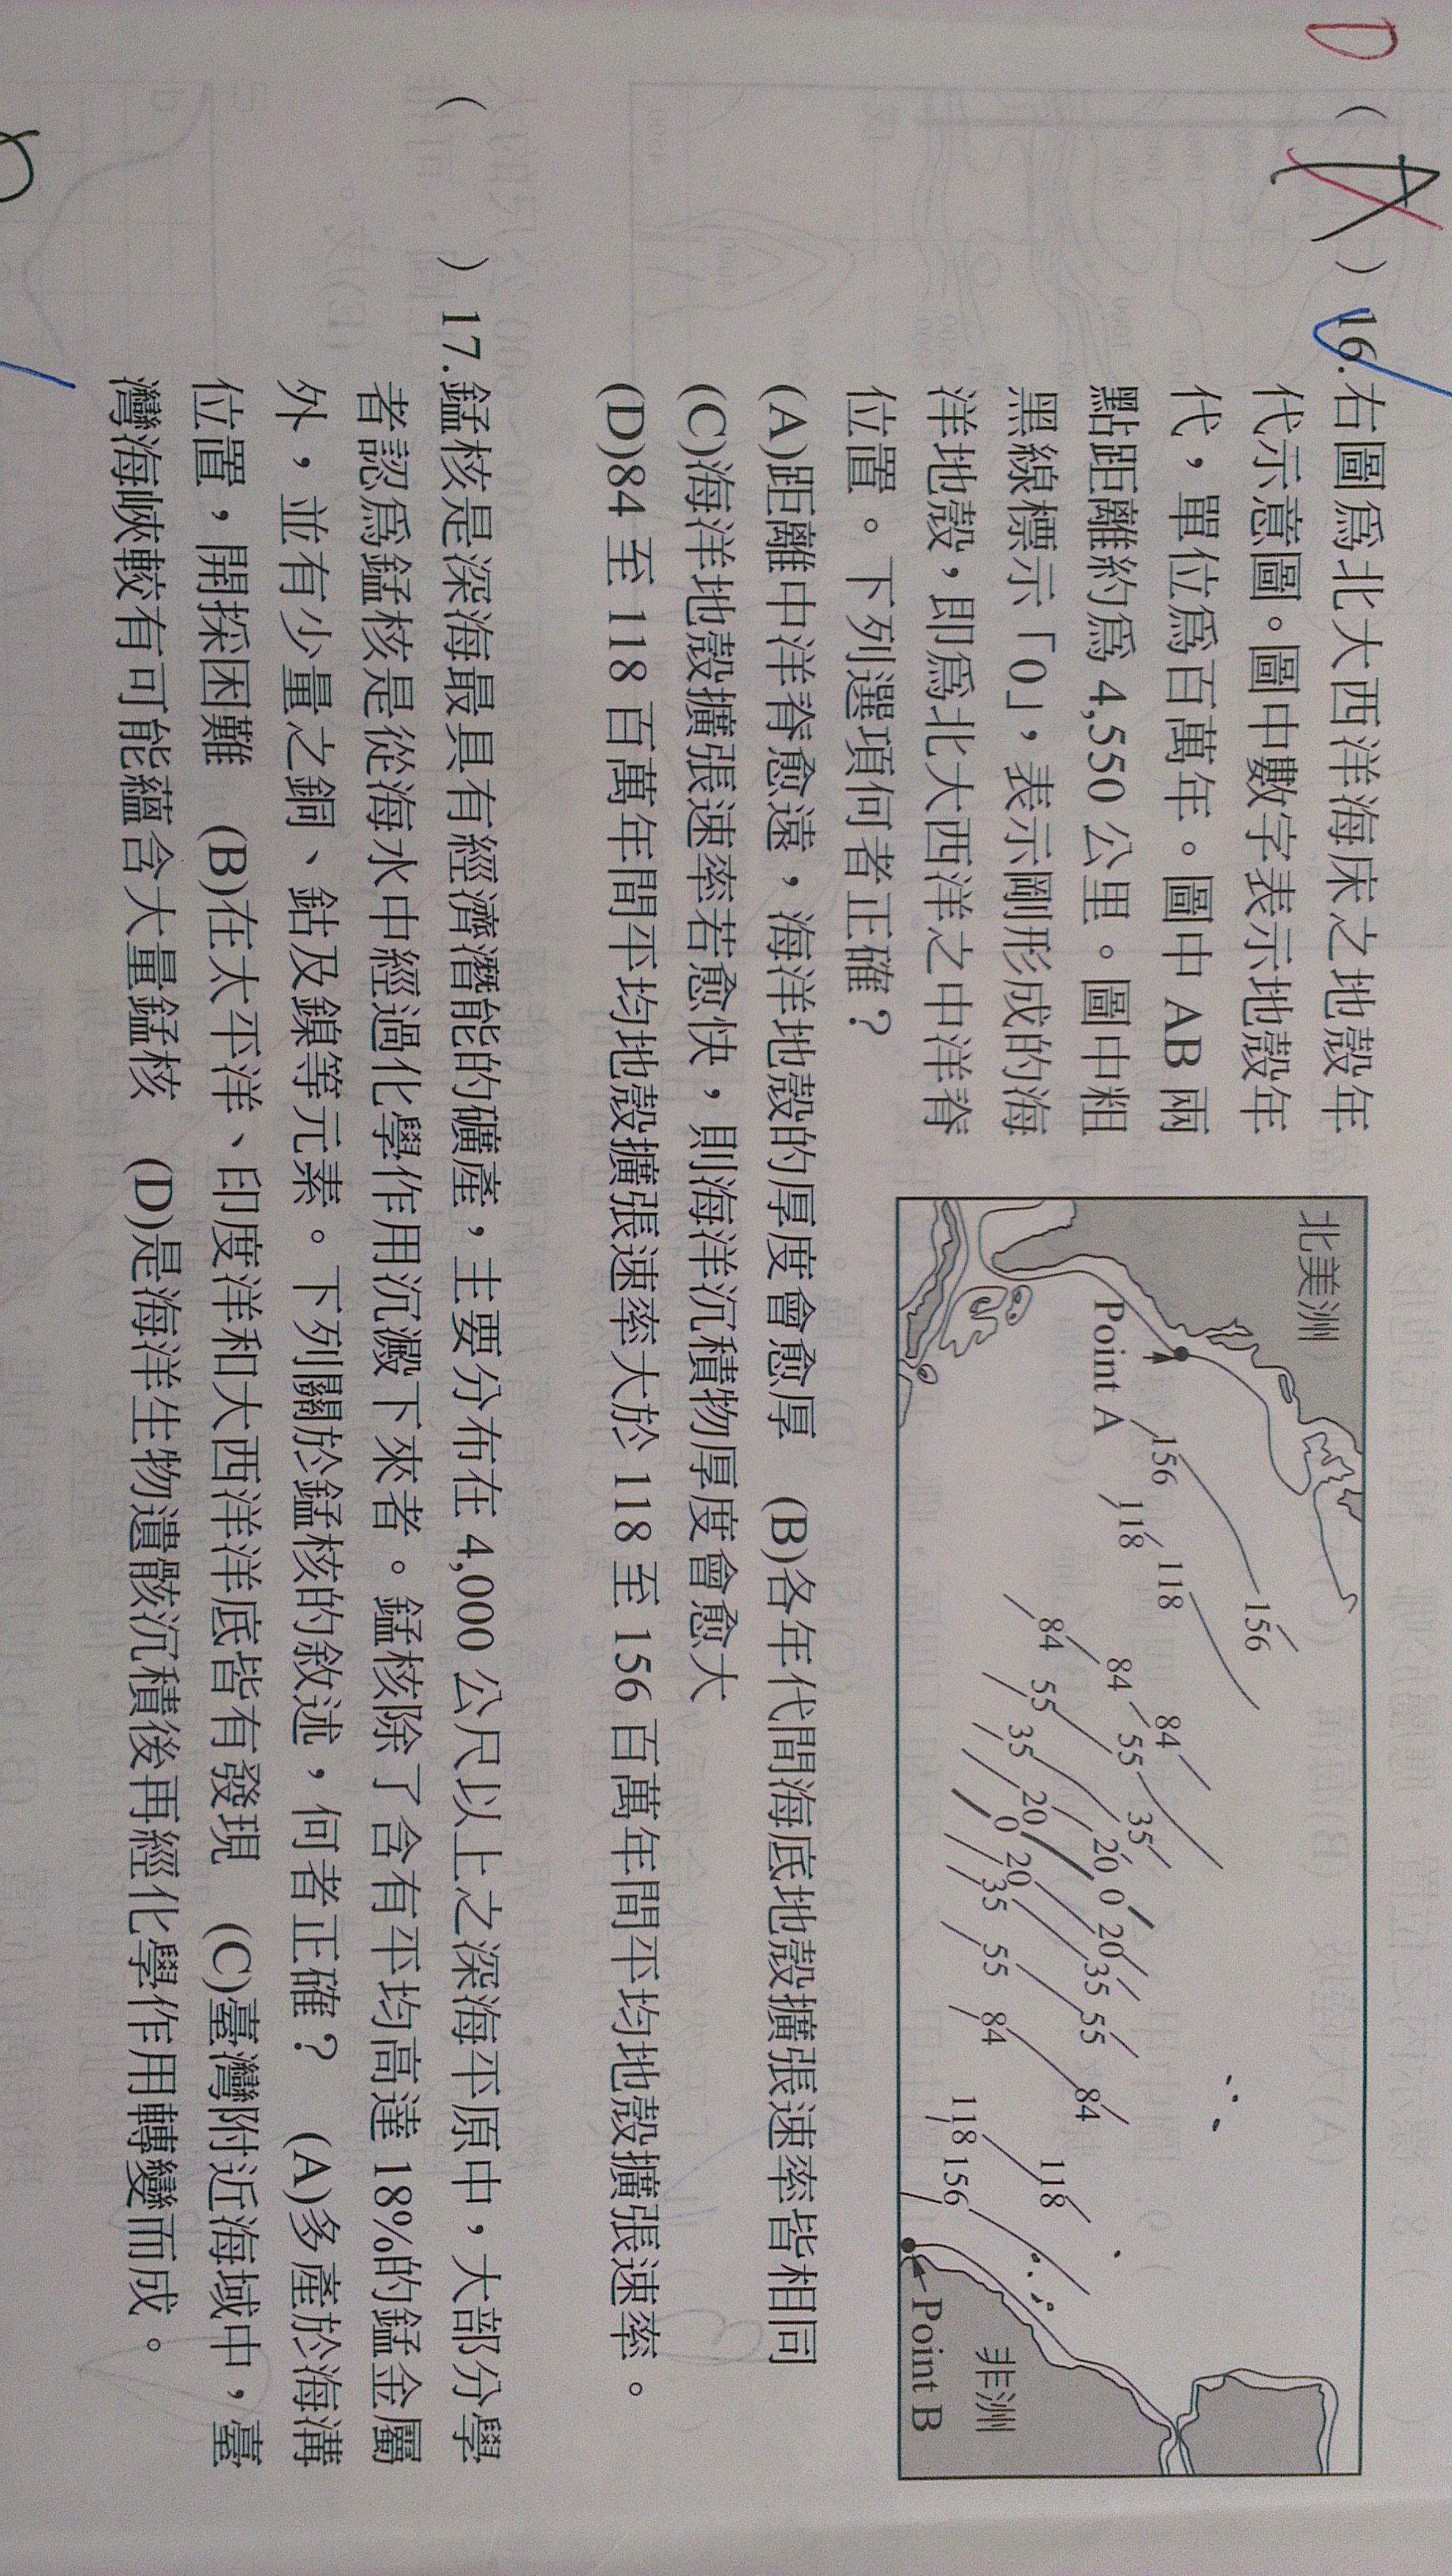 D
( A ) 16.右圖為北大西洋海床之地殼年
代示意圖。圖中數字表示地殼年
代，單位為百萬年。圖中 AB 兩
點距離約為 4,550 公里。圖中粗
黑線標示「0」，表示剛形成的海
洋地殼，即為北大西洋之中洋脊
位置。下列選項何者正確？
(A)距離中洋脊愈遠，海洋地殼的厚度會愈厚 (B)各年代間海底地殼擴張速率皆相同
(C)海洋地殼擴張速率若愈快，則海洋沉積物厚度會愈大
(D)84 至 118 百萬年間平均地殼擴張速率大於 118 至 156 百萬年間平均地殼擴張速率。
北美洲
Point A
156
156
118
118
84
84
84
55
55
35
35
20
20
0
0
20
20
35
35
55
55
84
84
118
118
156
非洲
Point B
( ) 17.錳核是深海最具有經濟潛能的礦產，主要分布在 4,000 公尺以上之深海平原中，大部分學
者認為錳核是從海水中經過化學作用沉澱下來者。錳核除了含有平均高達 18%的錳金屬
外，並有少量之銅、鈷及鎳等元素。下列關於錳核的敘述，何者正確？ (A)多產於海溝
位置，開採困難 (B)在太平洋、印度洋和大西洋洋底皆有發現 (C)臺灣附近海域中，臺
灣海峽較有可能蘊含大量錳核 (D)是海洋生物遺骸沉積後再經化學作用轉變而成。